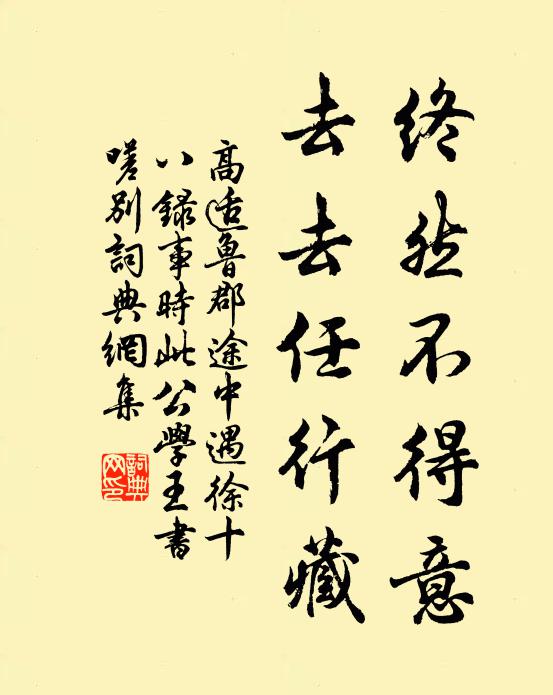 终然不得意
去去任行藏
高适魯郡途中遇徐十
八録事時此公學王書
嗟别詞典網集
詞典
网印